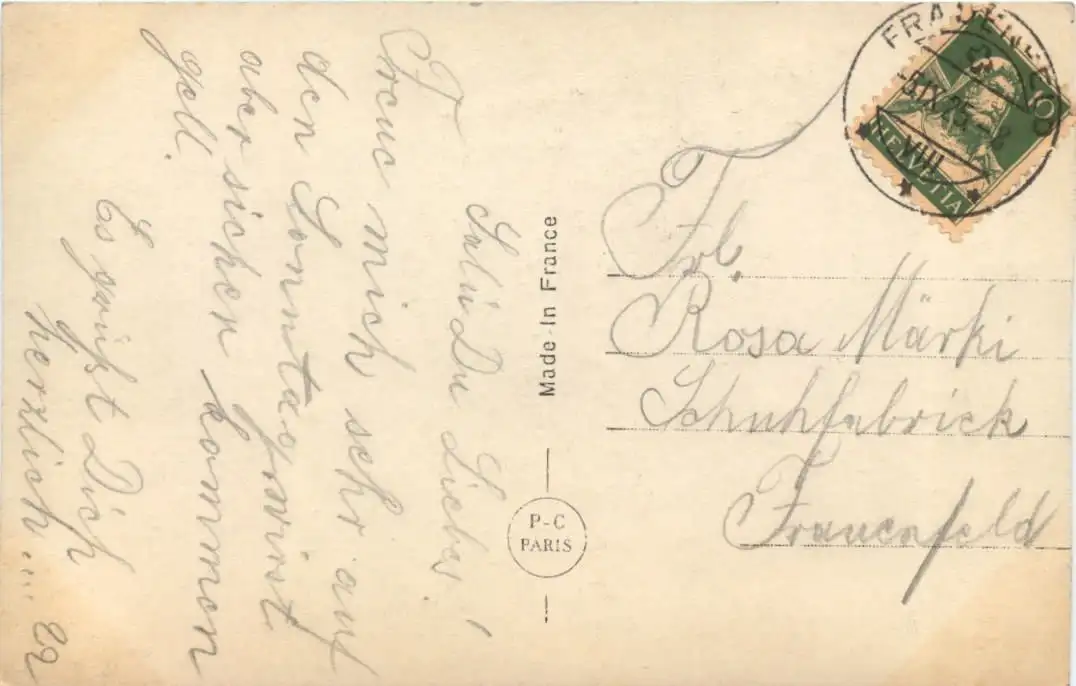 Salü Du Liebes!
Freue mich sehr auf
den Sonntag, wirst
aber sicher kommen
gell.
Es grüsst Dich
herzlich ...
Made in France
P-C
PARIS
FRAUENFELD
-9.IX.25.-
VIII
HELVETIA
10
Frl.
Rosa Märki
Schuhfabrick
Frauenfeld